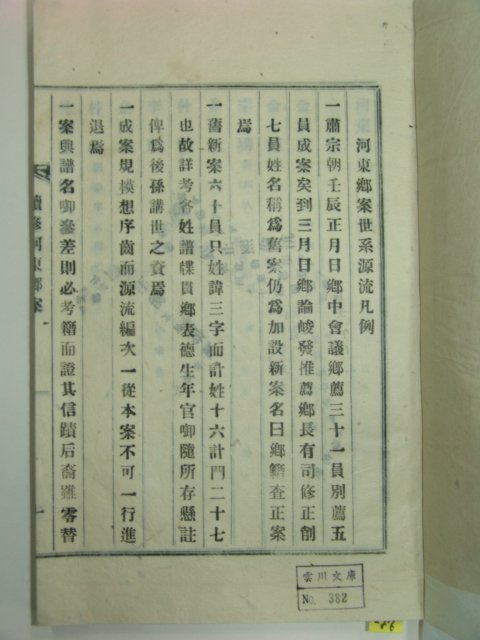 河東鄉案世系源流凡例
一肅宗朝壬辰正月日鄉中會議鄉薦三十一員別薦五
員成案矣到三月日鄉論峻發推薦鄉長有司修正創
七員姓名稱爲舊案仍爲加設新案名曰鄉籍査正案
焉
一舊新案六十員只姓諱三字而計姓十六計門二十七
也故詳考各姓譜牒貫鄉表德生年官啣隨所存懸註
俾爲後孫講世之資焉
一成案規模想序齒而源流編次一從本案不可一行進
退焉
一案與譜名啣參差則必考籍而證其信蹟后裔雖零替
續修河東鄉案
一
雲川文庫
No. 382